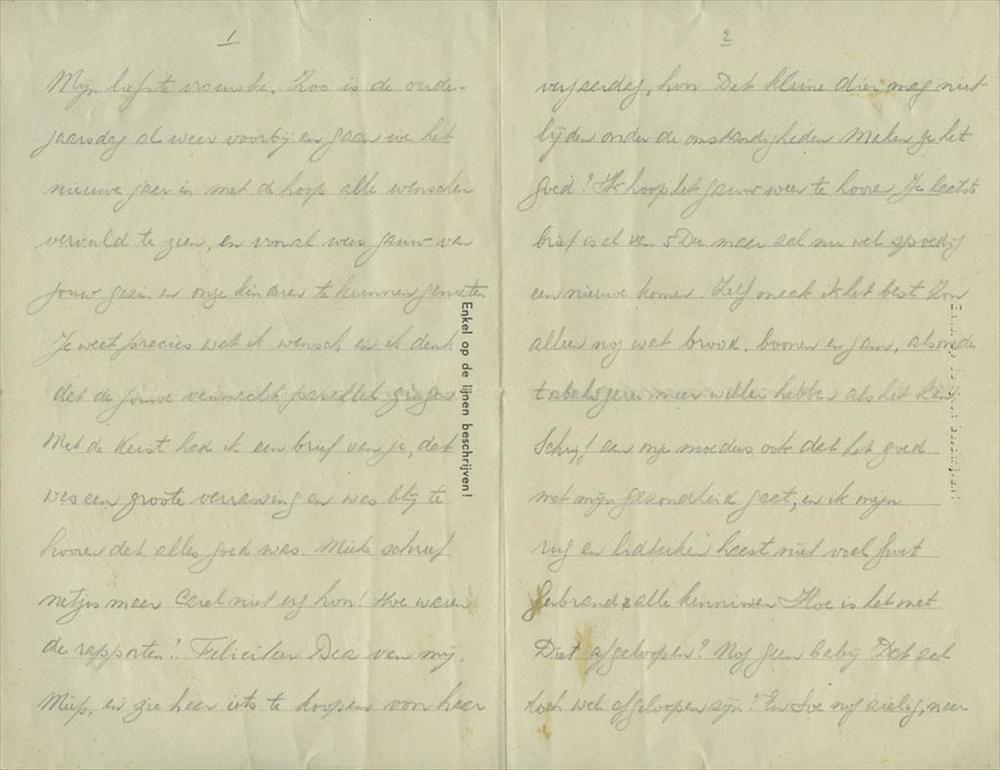 1
Mijn liefste vrouwke. Zoo is de oude-
jaarsdag al weer voorbij en gaan we het
nieuwe jaar in met de hoop alle wenschen
vervuld te zien, en vooral weer gauw van
jouw gezin en onze kinderen te kunnen genieten
Je weet precies wat ik wensch, en ik denk
dat de jouwe vermoedt parallel gingen
Met de Kerst had ik een brief van je, dat
was een groote verrassing en was blij te
hooren dat alles goed was. Mieke schreef
netjes maar Carel niet erg hoor! Hoe waren
de rapporten? Feliciteer Dea van mij.
Miep, en zie haar iets te koopen voor haar
Enkel op de lijnen beschrijven!
2
verjaardag, hoor Dat kleine dier mag niet
lijden onder de omstandigheden Maken je het
goed? Ik hoop het gauw weer te hooren Je laatste
brief is al van 5 Dec maar zal nu wel spoedig
een nieuwe komen. Zelf maak ik het best Zou
alleen nog wat brood, boonen en jam, alsmede
tabak gaarne meer willen hebben als het kan
Schrijf aan mijn moeders ook dat het goed
met mijn gezondheid gaat, en ik mijn
rug en haast niet voel Groet
Gerbrand & alle kennissen Hoe is het met
Diet afgeloopen? Nog geen baby Dat zal
toch wel afgeloopen zijn? En Joe nog zielig, naar